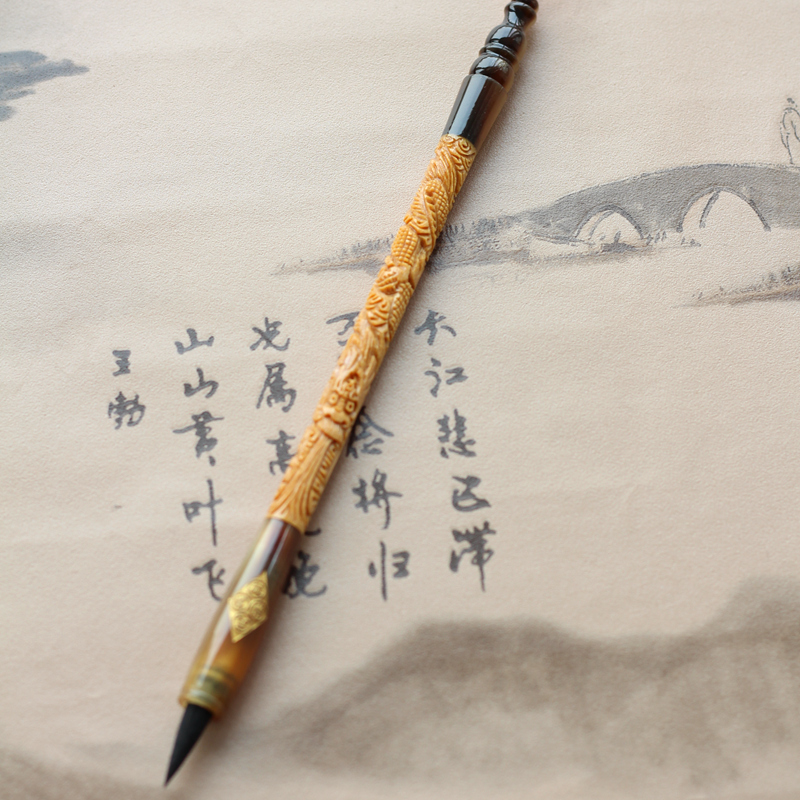 长江悲已滞
念将归
况属高晚
山山黄叶飞
王勃